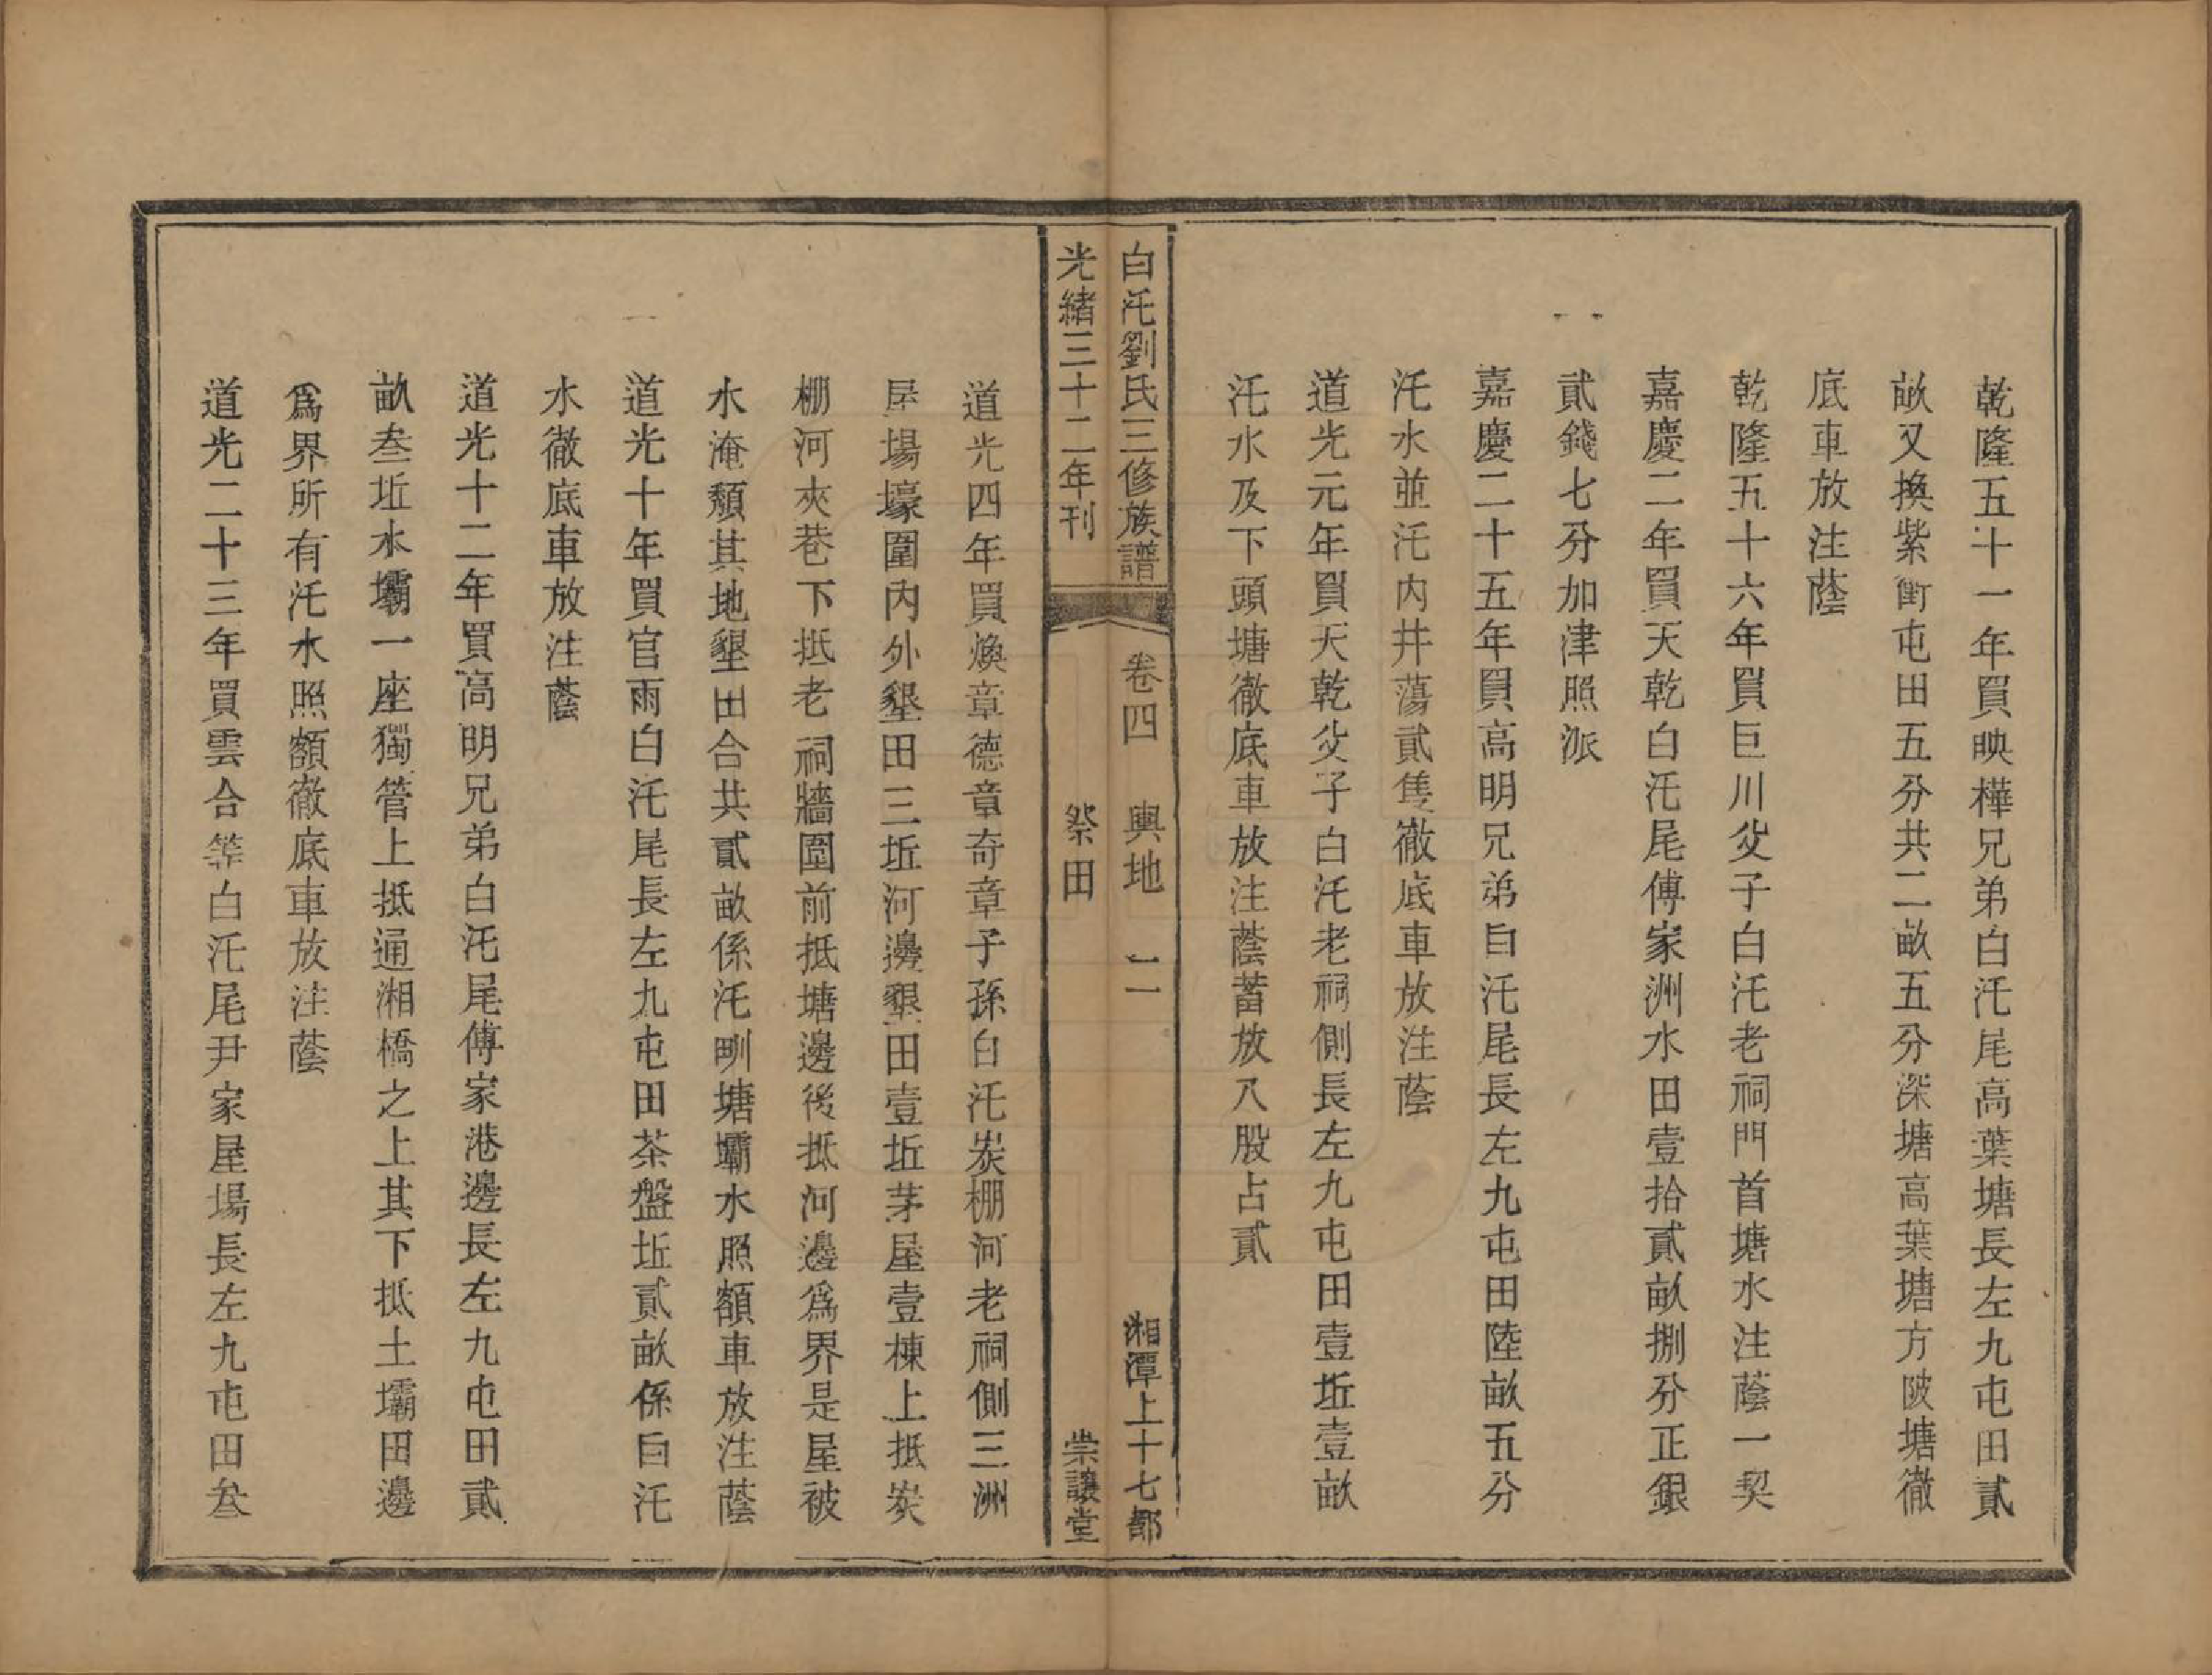 乾隆五十一年買映樺兄弟白汑尾高葉塘長左九屯田貳
畝又換紫衡屯田五分共二畝五分深塘高葉塘方陂塘徹
底車放注蔭
乾隆五十六年買巨川父子白汑老祠門首塘水注蔭一契
嘉慶二年買天乾白汑尾傅家洲水田壹拾貳畝捌分正銀
貳錢七分加津照派
嘉慶二十五年買高明兄弟白汑尾長左九屯田陸畝五分
汑水並汑內井蕩貳隻徹底車放注蔭
道光元年買天乾父子白汑老祠側長左九屯田壹坵壹畝
汑水及下頭塘徹底車放注蔭蓄放八股占貳
白汑劉氏三修族譜 卷四 輿地 二 湘潭上十七都
光緒三十二年刊 祭田 崇讓堂
道光四年買煥章德章奇章子孫白汑炭棚河老祠側三洲
屋場壕圍內外墾田三坵河邊墾田壹坵茅屋壹棟上抵炭
棚河夾巷下抵老祠牆圍前抵塘邊後抵河邊爲界是屋被
水淹頹其地墾田合共貳畝係汑甽塘壩水照額車放注蔭
道光十年買官雨白汑尾長左九屯田茶盤坵貳畝係白汑
水徹底車放注蔭
道光十二年買高明兄弟白汑尾傅家港邊長左九屯田貳
畝叁坵水壩一座獨管上抵通湘橋之上其下抵土壩田邊
爲界所有汑水照額徹底車放注蔭
道光二十三年買雲合等白汑尾尹家屋場長左九屯田叁